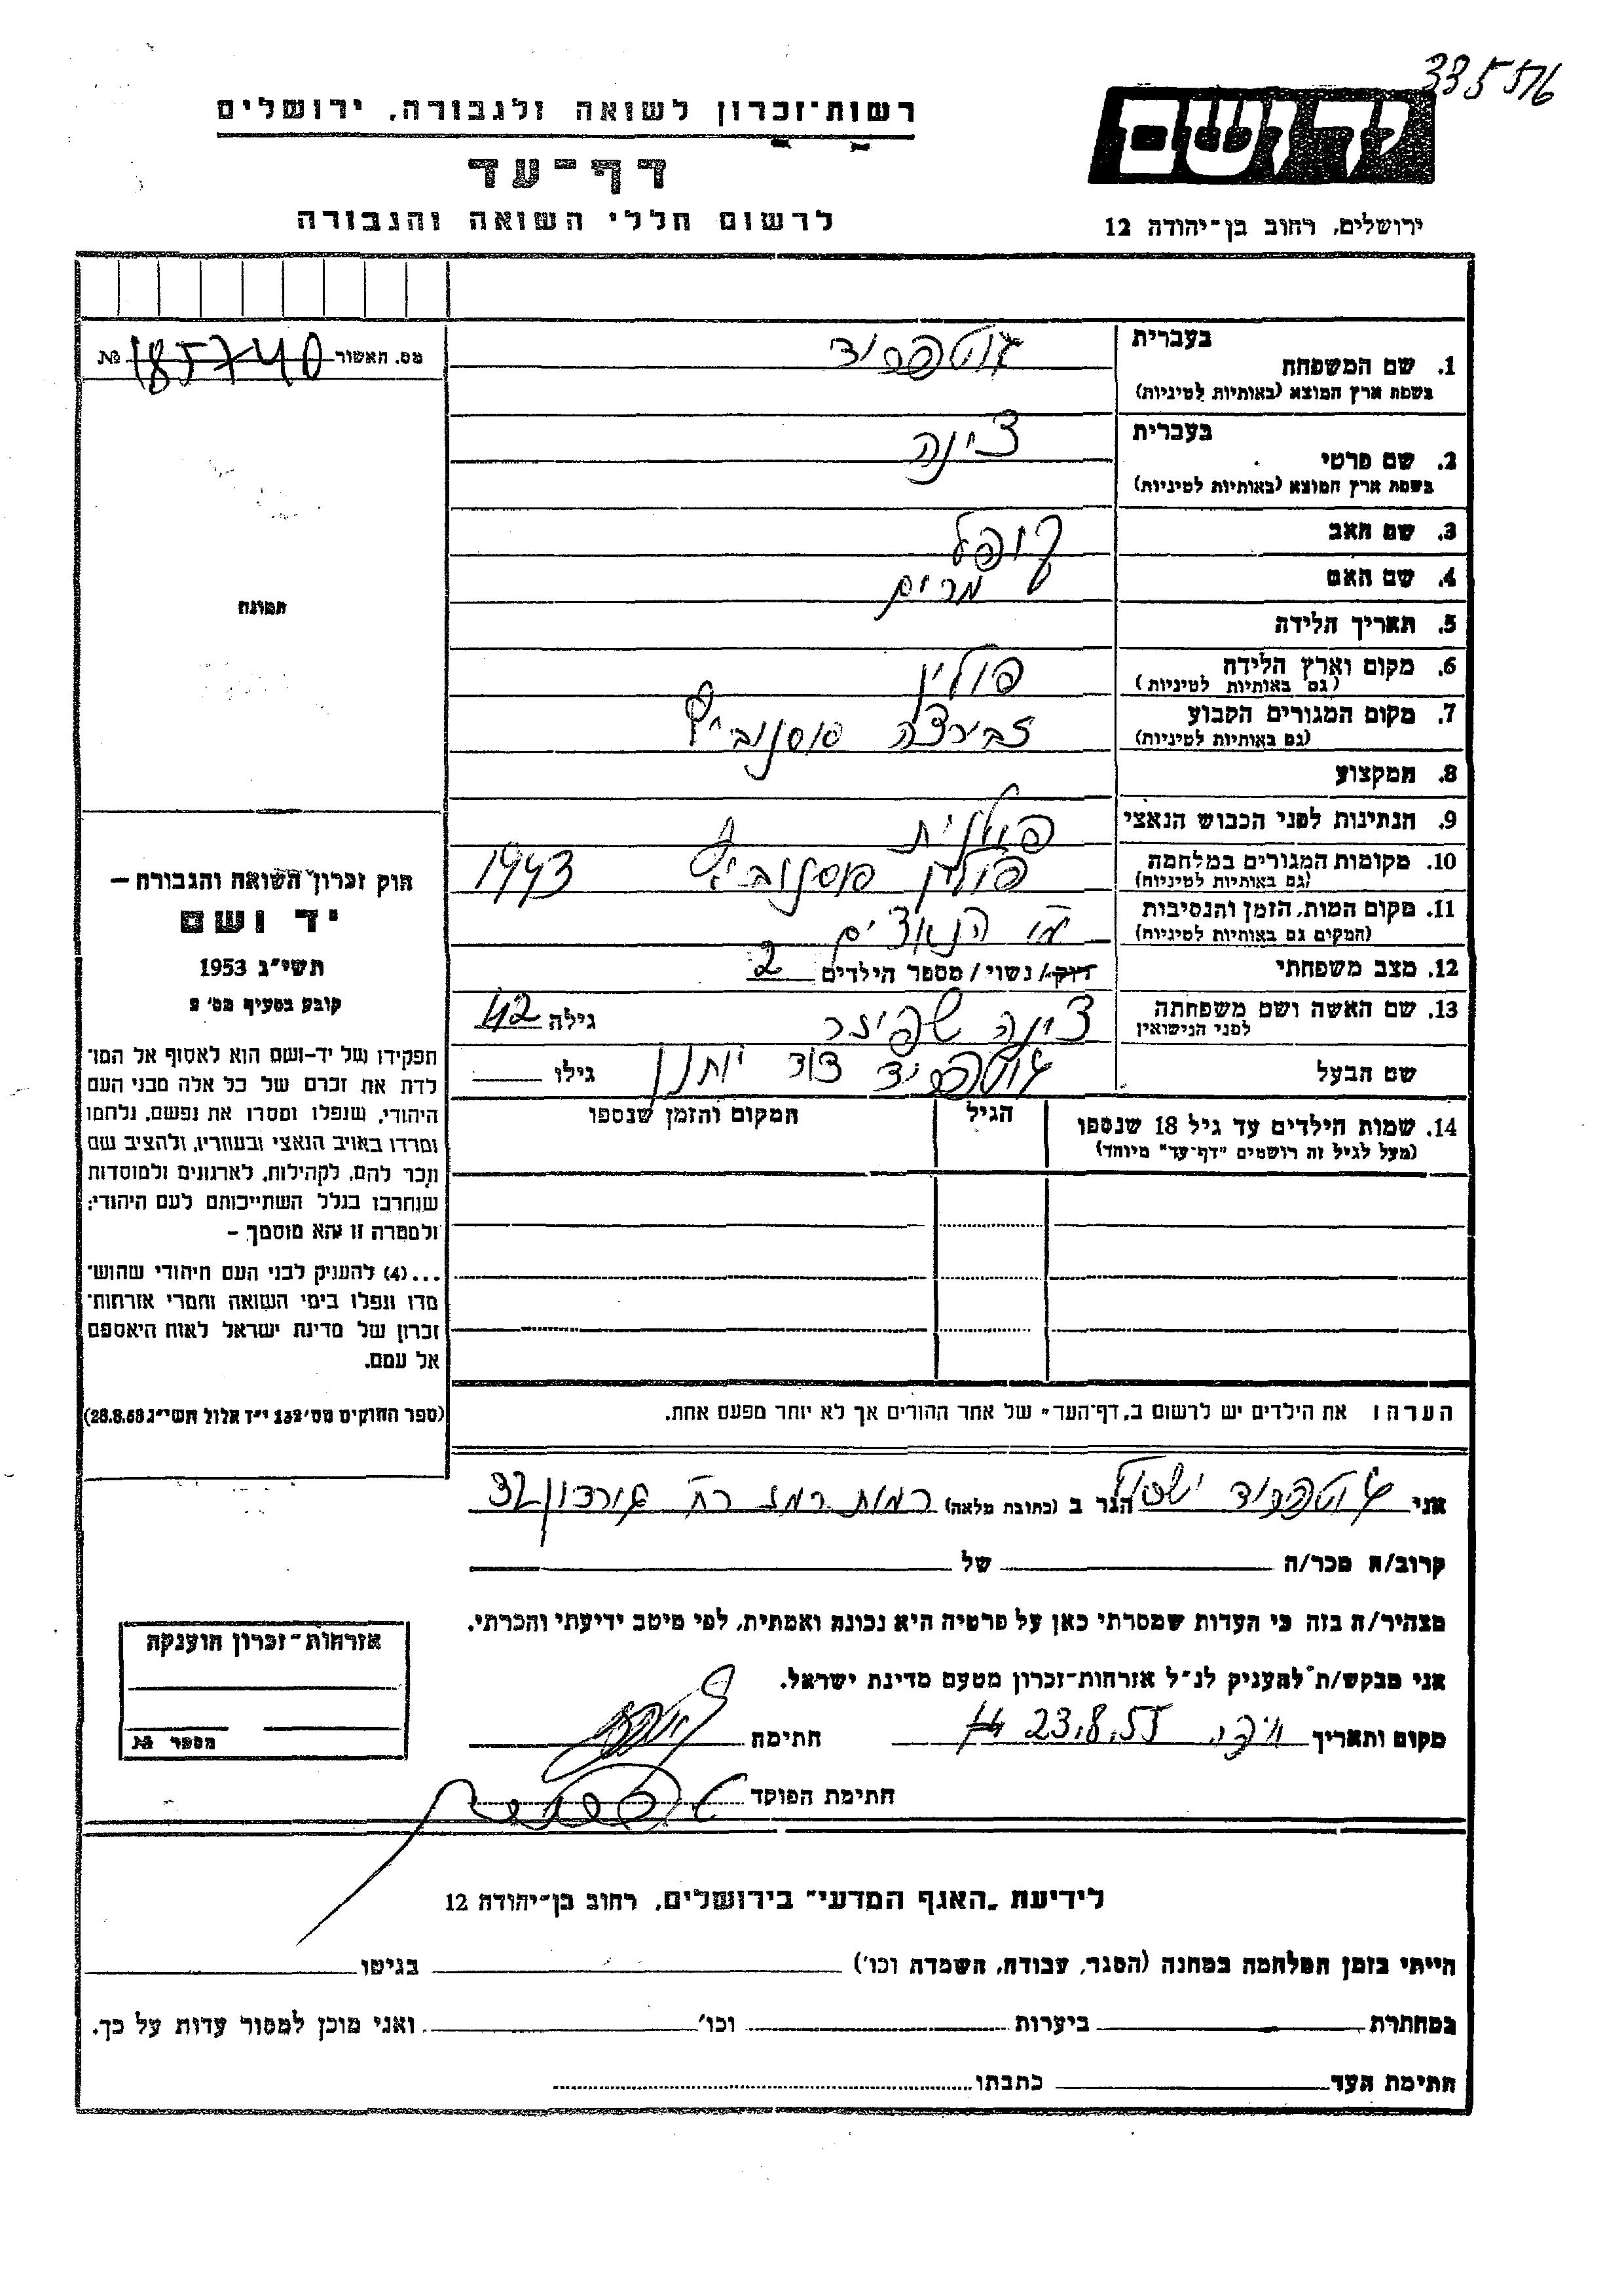 335576
רשות-זכרון לשואה ולגבורה, ירושלים
דף-עד
לרשום חללי השואה והגבורה
יד ושם
ירושלים, רחוב בן-יהודה 12
מס. האשור 185740 №
בעברית
1. שם המשפחה גוטפריד
בשפת ארץ המוצא (באותיות לטיניות)
בעברית
2. שם פרטי צינה
בשפת ארץ המוצא (באותיות לטיניות)
3. שם האב קופל
4. שם האם מרים
5. תאריך הלידה
6. מקום וארץ הלידה פולין
(גם באותיות לטיניות)
7. מקום המגורים הקבוע סוסנוביץ
(גם באותיות לטיניות)
8. המקצוע
9. הנתינות לפני הכבוש הנאצי פולנית
10. מקומות המגורים במלחמה פולין סוסנוביץ 1943
(גם באותיות לטיניות)
11. מקום המות, הזמן והנסיבות ע"י הנאצים
(המקום גם באותיות לטיניות)
12. מצב משפחתי רוק/ נשוי/ מספר הילדים 2
13. שם האשה ושם משפחתה צינה שפיזר גילה 42
לפני הנישואין
שם הבעל גוטפריד דוד יונתן גילו
14. שמות הילדים עד גיל 18 שנספו הגיל המקום והזמן שנספו
(מעל לגיל זה רושמים "דף-עד" מיוחד)
הערה: את הילדים יש לרשום ב„דף-העד" של אחד ההורים אך לא יותר מפעם אחת.
תמונה
חוק זכרון השואה והגבורה —
יד ושם
תשי"ג 1953
קובע בסעיף מס' 2
תפקידו של יד-ושם הוא לאסוף אל המו־
לדת את זכרם של כל אלה מבני העם
היהודי, שנפלו ומסרו את נפשם, נלחמו
ומרדו באויב הנאצי ובעוזריו, ולהציב שם
וזכר להם, לקהילות, לארגונים ולמוסדות
שנחרבו בגלל השתייכותם לעם היהודי;
ולמטרה זו יהא מוסמך —
...(4) להעניק לבני העם היהודי שהוש־
מדו ונפלו בימי השואה והמרי אזרחות־
זכרון של מדינת ישראל לאות היאספם
אל עמם.
(ספר החוקים מס' 132 י"ד אלול תשי"ג 28.8.53)
אני גוטפריד ישראל הגר ב (כתובת מלאה) רמות רמז רח' גורדון 32
קרוב/ה מכר/ה של
מצהיר/ה בזה כי העדות שמסרתי כאן על פרטיה היא נכונה ואמתית, לפי מיטב ידיעתי והכרתי.
אני מבקש/ת להעניק לנ"ל אזרחות-זכרון מטעם מדינת ישראל.
מקום ותאריך חיפה 23.8.55 חתימה
חתימת הפוקד
אזרחות-זכרון הוענקה
מספר №
לידיעת „האגף המדעי" בירושלים, רחוב בן-יהודה 12
הייתי בזמן המלחמה במחנה (הסגר, עבודה, השמדה וכו') בגיטו
במחתרת ביערות וכו' ואני מוכן למסור עדות על כך.
חתימת העד כתבתו